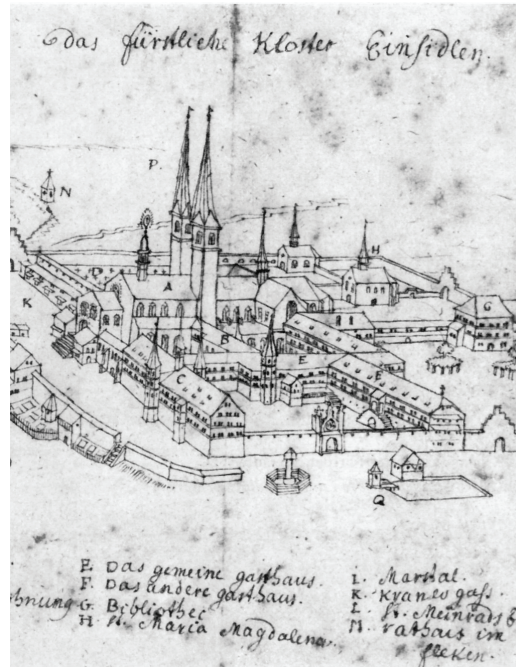 das fürstliche Kloster Einsidlen.
P.
N
H
D
A
K
G
B
E
C
F
Q
E. Das gemeine gasthaus.
F. Das andere gasthaus.
hnung G. Bibliothec
H St. Maria Magdalena.
I. Marstal.
K. Kranes gass.
L. St. Meinrads
M. rathaus im
flecken.